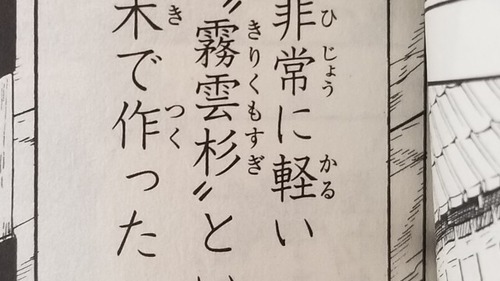 非常に軽い
〝霧雲杉〟とい
木で作った